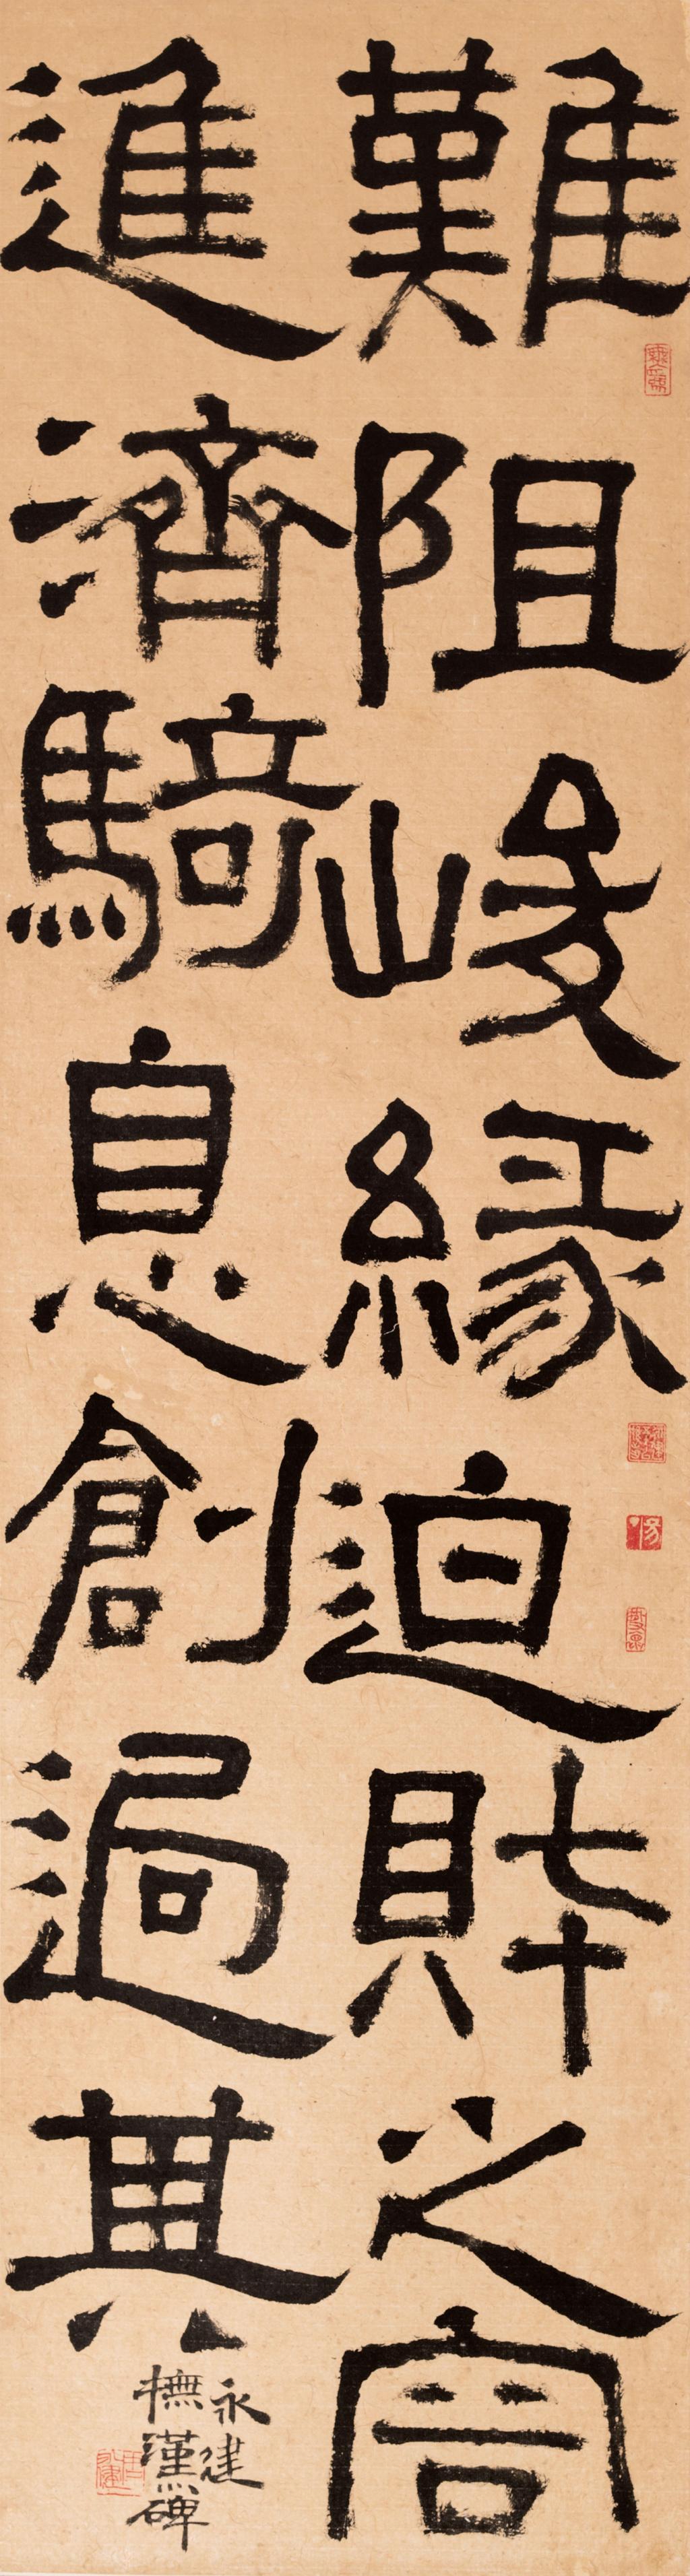 難阻峻緣迫財之害
進濟騎息創過其
永建
撫漢碑